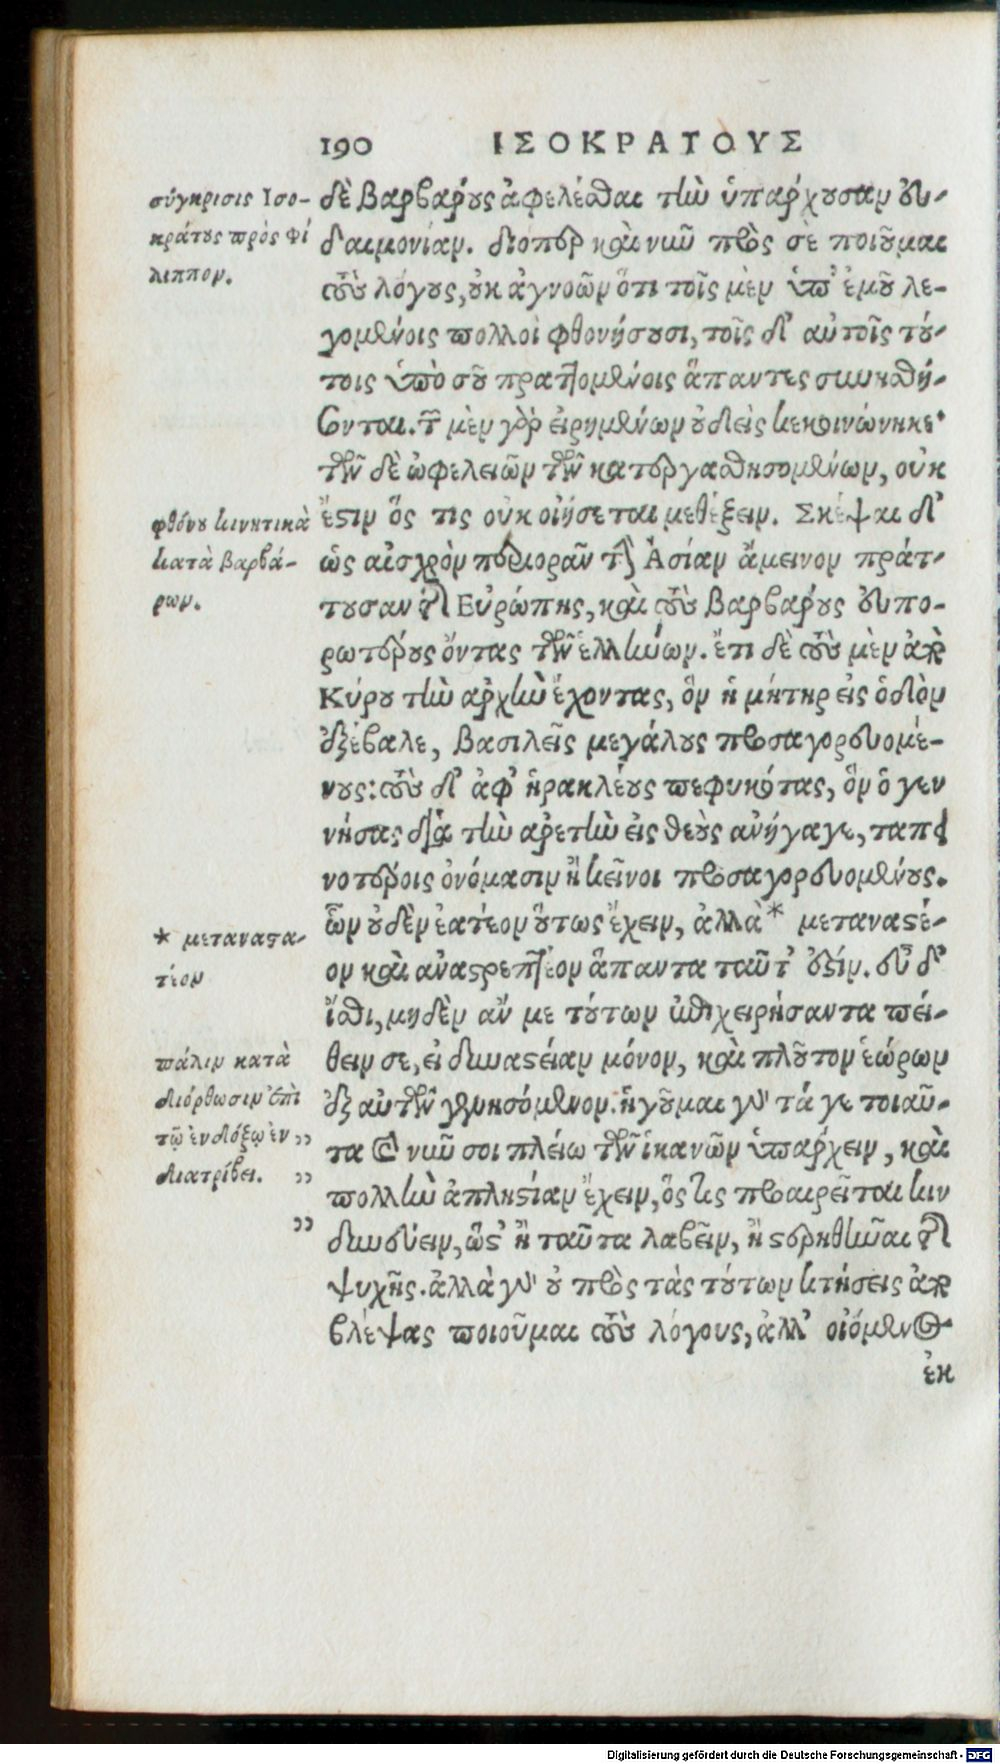 190 ΙΣΟΚΡΑΤΟΥΣ
σύγκρισις Ισο-
κράτους πρὸς Φί
λιππον.
δὲ βαρβάρους ἀφελέσθαι τὴν ὑπάρχουσαν εὐ-
δαιμονίαν. διόπερ καὶ νῦν πρὸς σὲ ποιοῦμαι
τοὺς λόγους, οὐκ ἀγνοῶν ὅτι τοῖς μὲν ὑπ' ἐμοῦ λε-
γομένοις πολλοὶ φθονήσουσι, τοῖς δ' αὐτοῖς τού-
τοις ὑπὸ σοῦ πραττομένοις ἅπαντες συνησθή-
σονται. τῶν μὲν γὰρ εἰρημένων οὐδεὶς κεκοινώνηκε·
τῶν δὲ ὠφελειῶν τῶν κατεργασθησομένων, οὐκ
φθόνου κινητικὰ
κατὰ βαρβά-
ρων.
ἔστιν ὅς τις οὐκ οἰήσεται μεθέξειν. Σκέψαι δ'
ὡς αἰσχρὸν περιορᾶν τὴν Ἀσίαν ἄμεινον πράτ-
τουσαν τῆς Εὐρώπης, καὶ τοὺς βαρβάρους εὐπο-
ρωτέρους ὄντας τῶν ἑλλήνων. ἔτι δὲ τοὺς μὲν ἀπὸ
Κύρου τὴν ἀρχὴν ἔχοντας, ὃν ἡ μήτηρ εἰς ὁδὸν
ἐξέβαλε, βασιλεῖς μεγάλους προσαγορευομέ-
νους: τοὺς δ' ἀφ' ἡρακλέους πεφυκότας, ὃν ὁ γεν
νήσας διὰ τὴν ἀρετὴν εἰς θεοὺς ἀνήγαγε, ταπει
νοτέροις ὀνόμασιν ἢ κεῖνοι προσαγορευομένους.
* μεταναστα-
τέον
ὧν οὐδὲν ἐατέον οὕτως ἔχειν, ἀλλὰ* μεταναστέ-
ον καὶ ἀναστρεπτέον ἅπαντα ταῦτ' ἐστίν. εὖ δ'
ἴσθι, μηδὲν ἄν με τούτων ἐπιχειρήσαντα πεί-
πάλιν κατὰ
διόρθωσιν ἐπὶ
τῷ ἐνδόξῳ ἐν ,,
διατρίβει. ,,
,,
θειν σε, εἰ δυναστείαν μόνον, καὶ πλοῦτον ἑώρων
ἐξ αὐτῶν γενησόμενον. ἡγοῦμαι γὰρ τά γε τοιαῦ-
τα καὶ νῦν σοι πλείω τῶν ἱκανῶν ὑπάρχειν, καὶ
πολλὴν ἀπληστίαν ἔχειν, ὅς τις προαιρεῖται κιν
δυνεύειν, ὥστ' ἢ ταῦτα λαβεῖν, ἢ στερηθῆναι τῆς
ψυχῆς. ἀλλὰ γὰρ οὐ πρὸς τὰς τούτων κτήσεις ἀπο
βλέψας ποιοῦμαι τοὺς λόγους, ἀλλ' οἰόμενος
ἐκ
Digitalisierung gefördert durch die Deutsche Forschungsgemeinschaft - DFG